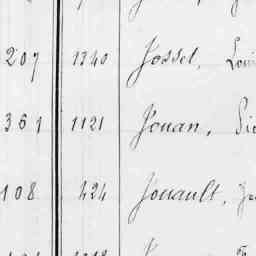 207 1340 Josset, Loui
361 1121 Jouan,
108 424 Jouault,